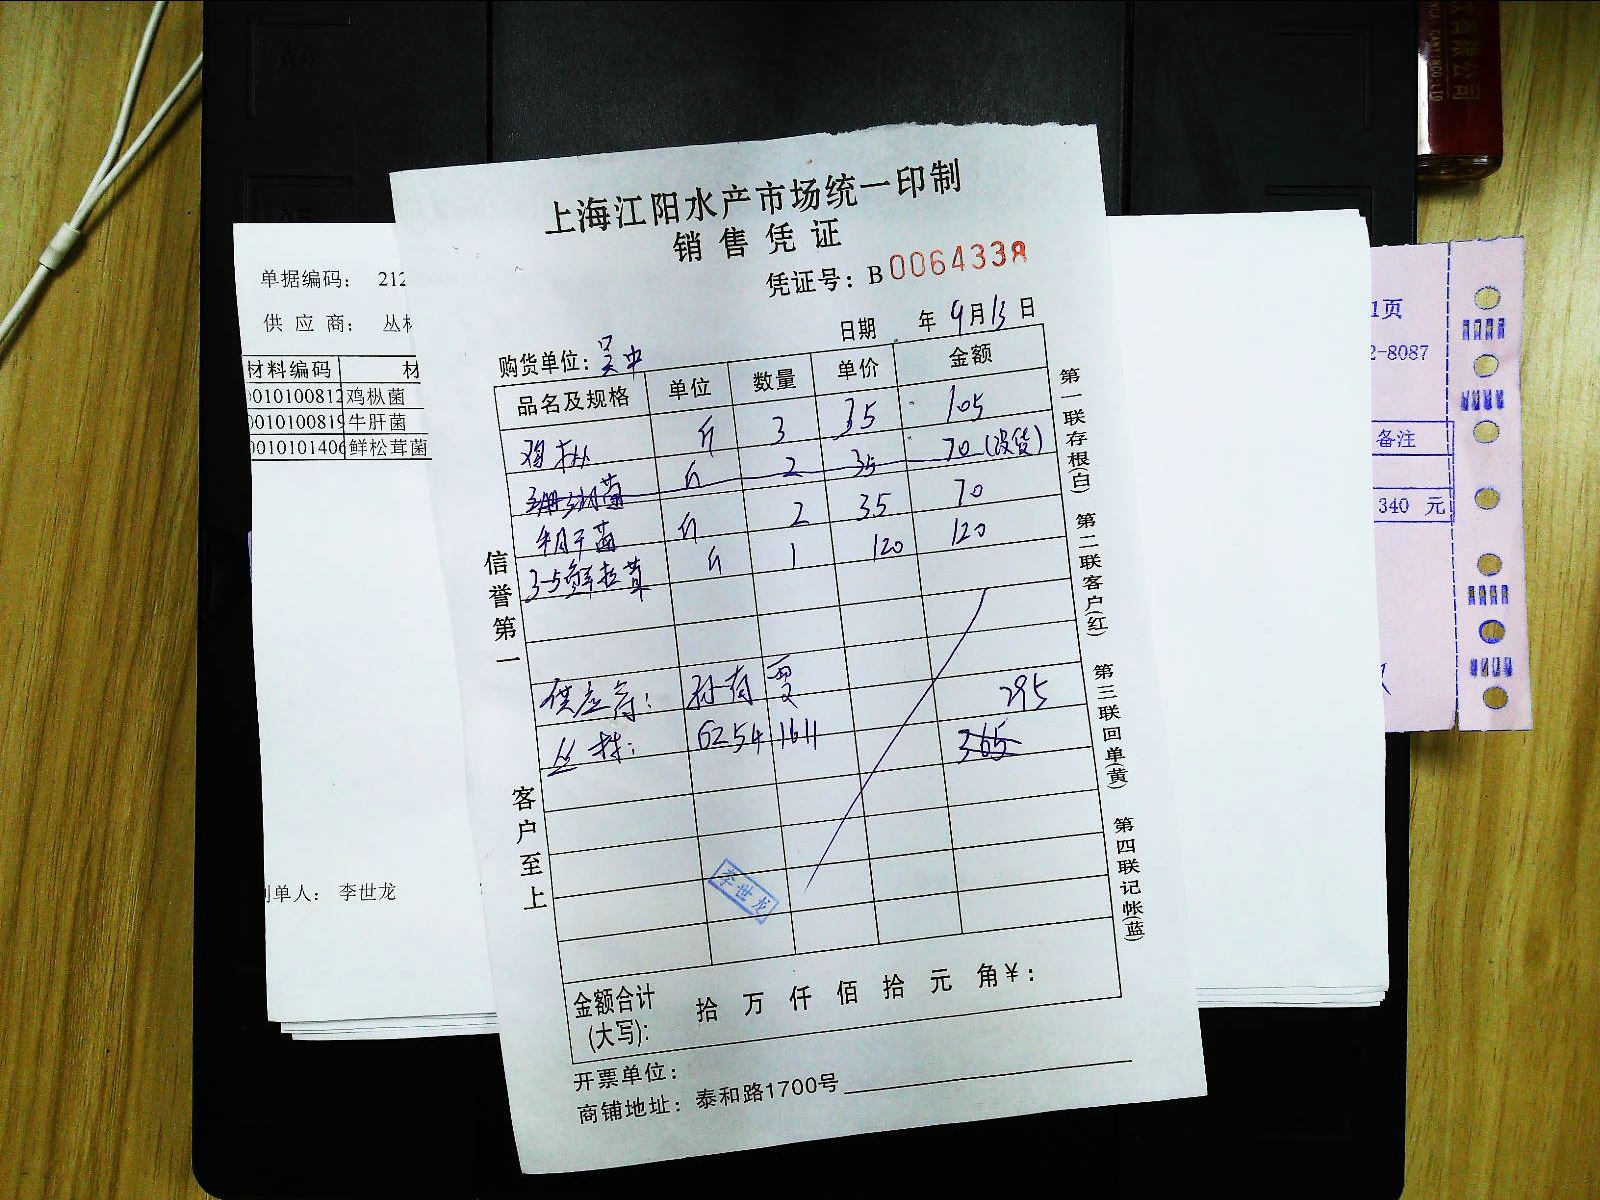 上海江阳水产市场统一印制
销售凭证
凭证号：B0064338
日期 年9月13日
购货单位：吴中
品名及规格 单位 数量 单价 金额
鸡枞 斤 3 35 105
斤 2 35 70(没货)
牛肝菌 斤 2 35 70
3-5鲜松茸 斤 1 120 120
供应商：孙有雯 295
丛林：62541611 365
李世龙
金额合计(大写)： 拾 万 仟 佰 拾 元 角￥：
开票单位：
商铺地址：泰和路1700号
信誉第一
客户至上
第一联存根(白)
第二联客户(红)
第三联回单(黄)
第四联记帐(蓝)
单据编码： 212
供应商： 丛林
材料编码 材
0010100812 鸡枞菌
0010100819 牛肝菌
0010101406 鲜松茸菌
制单人： 李世龙
1页
2-8087
备注
340 元
有限公司